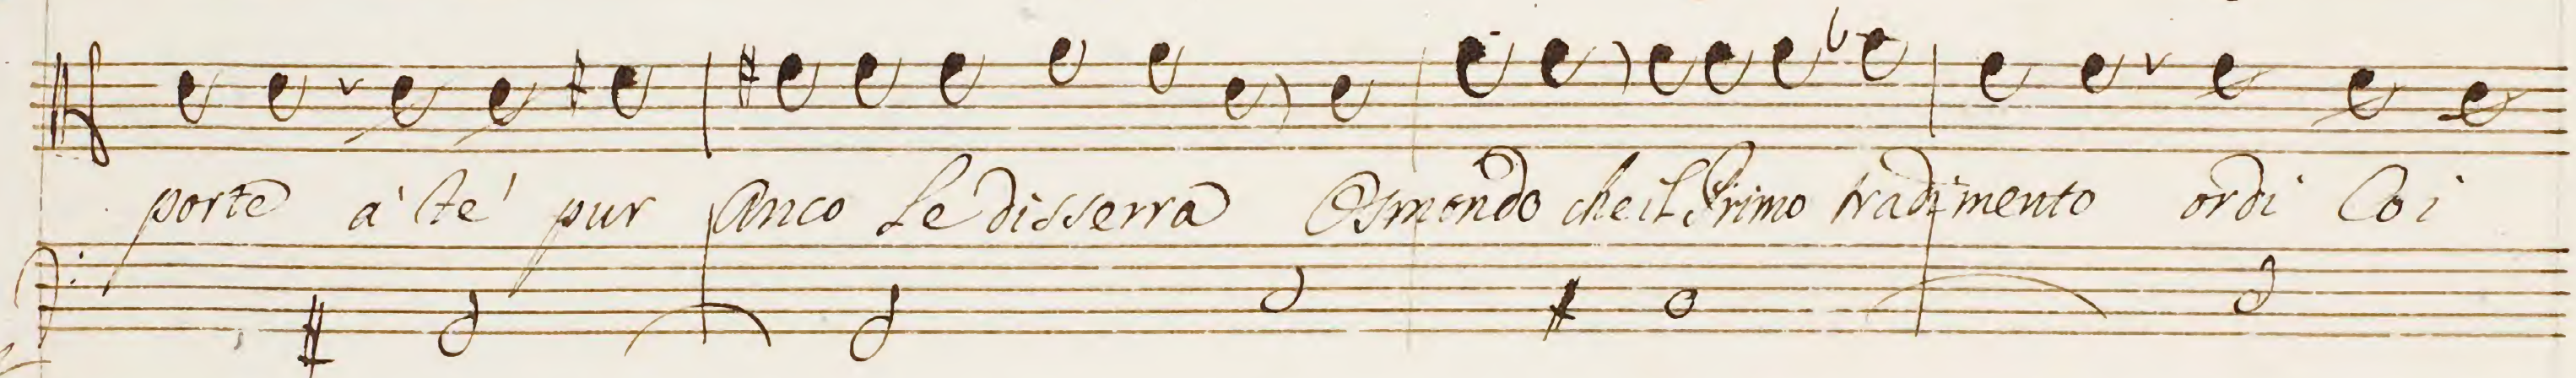 porte à te' pur Anco Le disserra Osmondo che il Primo tradimento ordi Coi